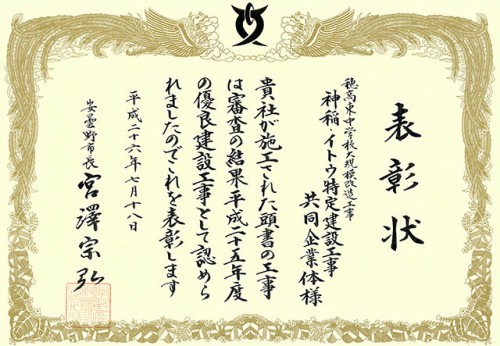 表彰状
穂高東中学校大規模改造工事
神稲・イトウ特定建設工事
共同企業体様
貴社が施工された頭書の工事
は審査の結果平成二十五年度
の優良建設工事として認めら
れましたのでこれを表彰します
平成二十六年七月十八日
安曇野市長 宮澤宗弘